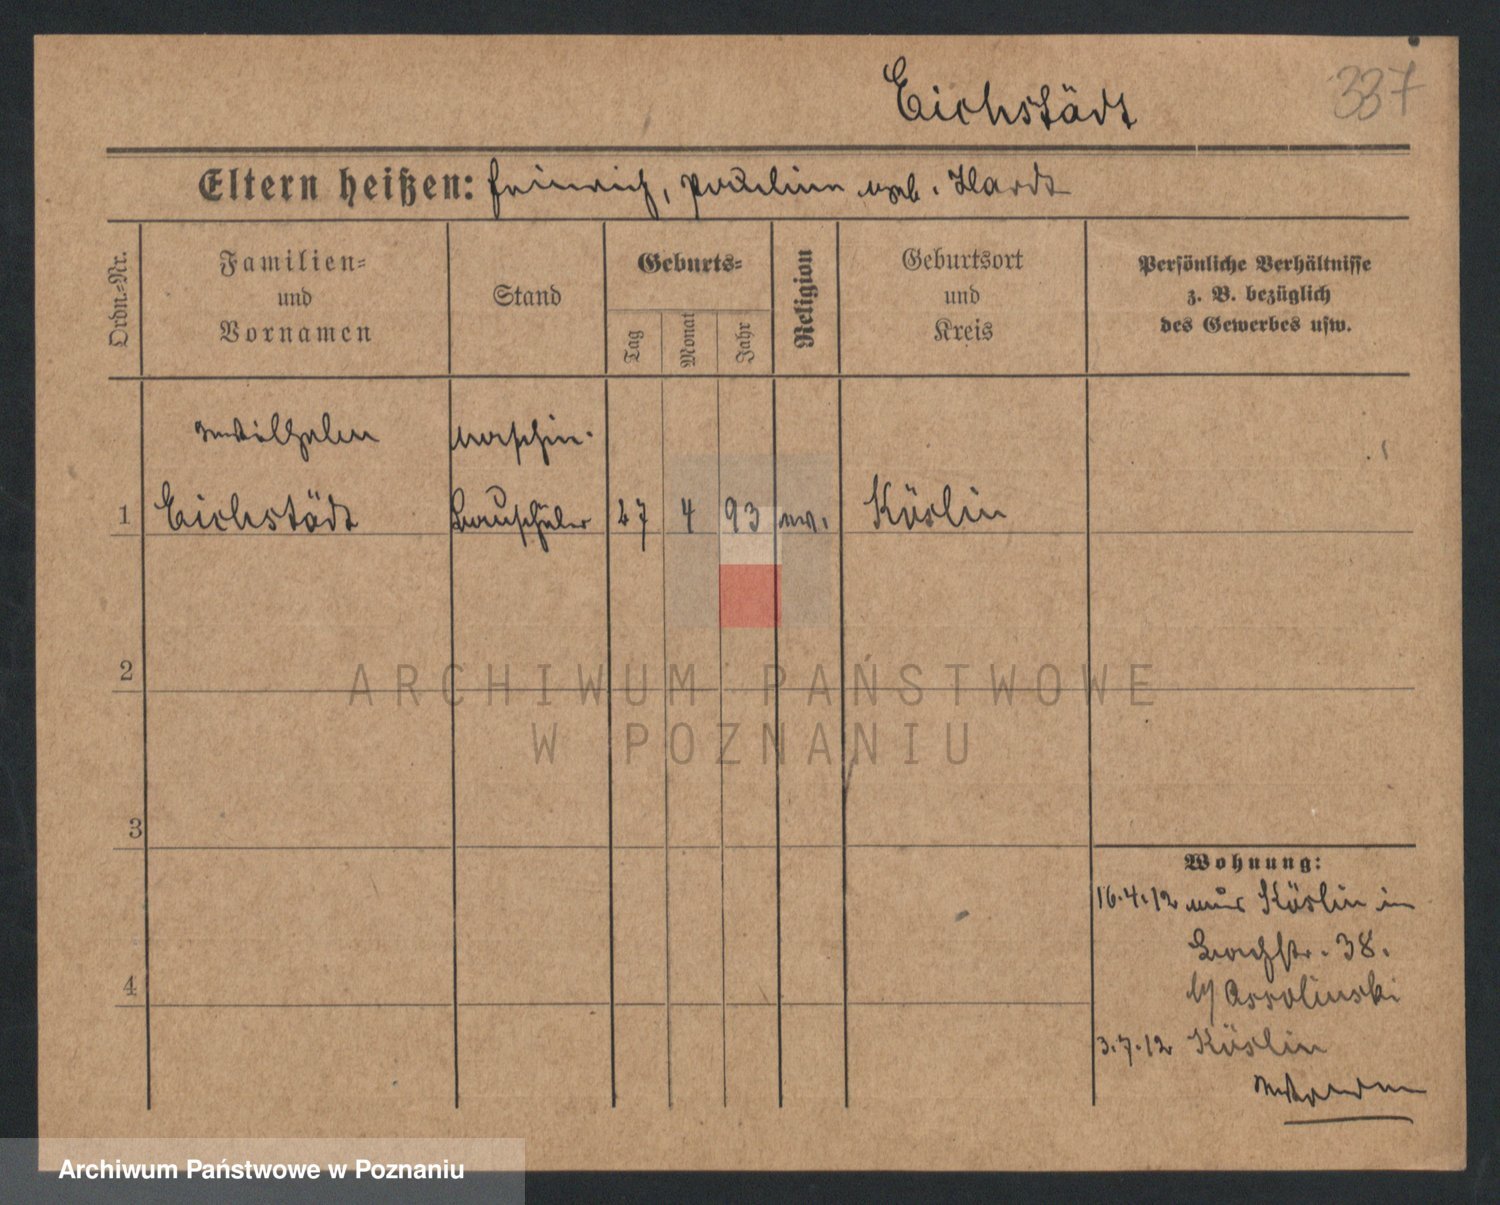 Eichstädt
337
Eltern heißen: Heinrich, Pauline geb. Hardt
Ordn.-Nr.
Familien-
und
Vornamen
Stand
Geburts-
Tag
Monat
Jahr
Religion
Geburtsort
und
Kreis
Persönliche Verhältnisse
z. B. bezüglich
des Gewerbes usw.
Wilhelm
Maschin-
1 Eichstädt Bauschüler 27 4 93 ev. Köslin
2
3
4
Wohnung:
16.4.12 aus Köslin in
Bachstr. 38.
b/
3.7.12 Köslin
ARCHIWUM PAŃSTWOWE
W POZNANIU
Archiwum Państwowe w Poznaniu